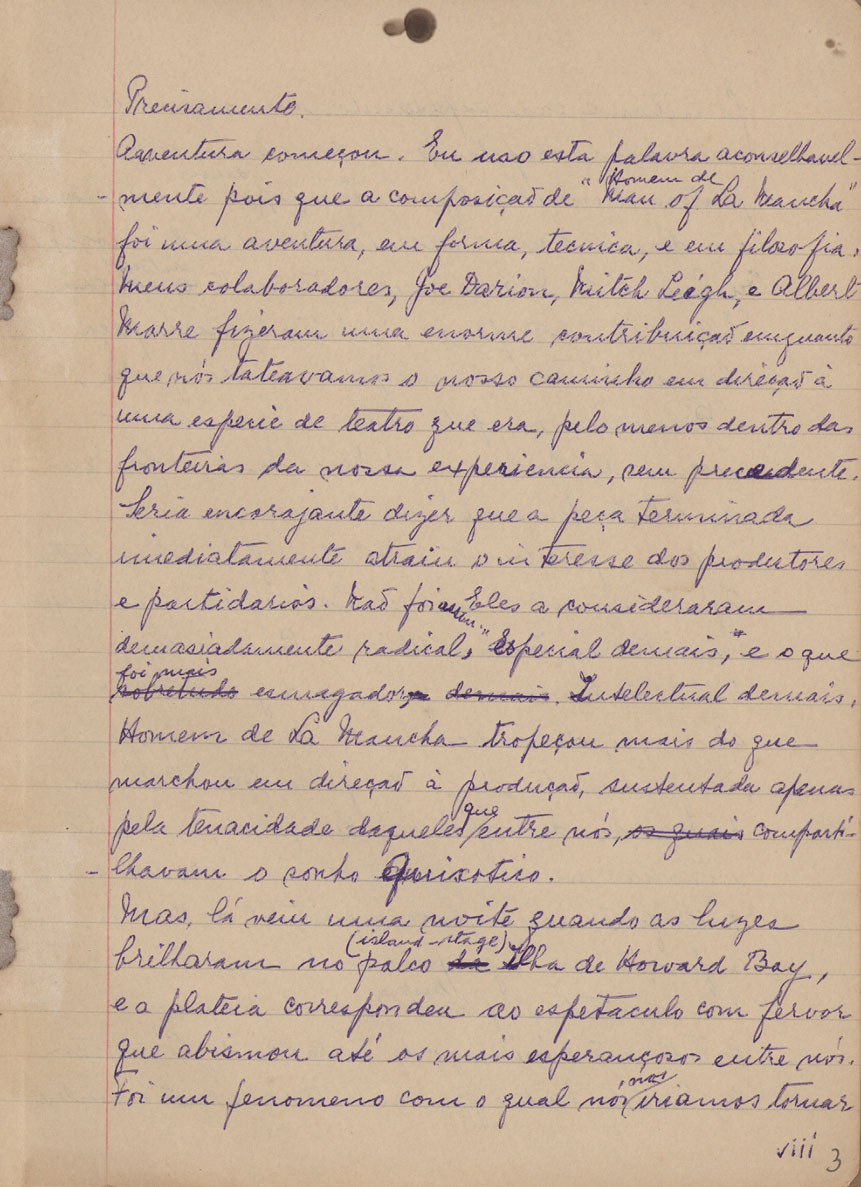 Precisamente.
A aventura começou. Eu uso esta palavra aconselhavel-
- mente pois que a composição de "Man of La Mancha"
Homem de
foi uma aventura, em forma, tecnica, e em filosofia.
Meus colaboradores, Joe Darion, Mitch Leigh, e Albert
Marre fizeram uma enorme contribuição emquanto
que nós tateavamos o nosso caminho em direção à
uma especie de teatro que era, pelo menos dentro das
fronteiras da nossa experiencia, sem precedente.
Seria encorajante dizer que a peça terminada
imediatamente atraiu o interesse dos produtores
e partidarios. Não foi assim. Eles a consideraram
demasiadamente radical, "Especial demais," e o que
foi mais
sobretudo esmagador, demais. Intelectual demais.
Homem de La Mancha tropeçou mais do que
marchou em direção à produção, sustentada apenas
pela tenacidade daqueles que entre nós, os quais comparti-
- lhavam o sonho Quixotico.
Mas, lá veiu uma noite quando as luzes
(island-stage)
brilharam no palco da Ilha de Howard Bay,
e a plateia correspondeu ao espetaculo com fervor
que abismou até os mais esperançosos entre nós.
Foi um fenomeno com o qual nós nos iriamos tornar
viii 3